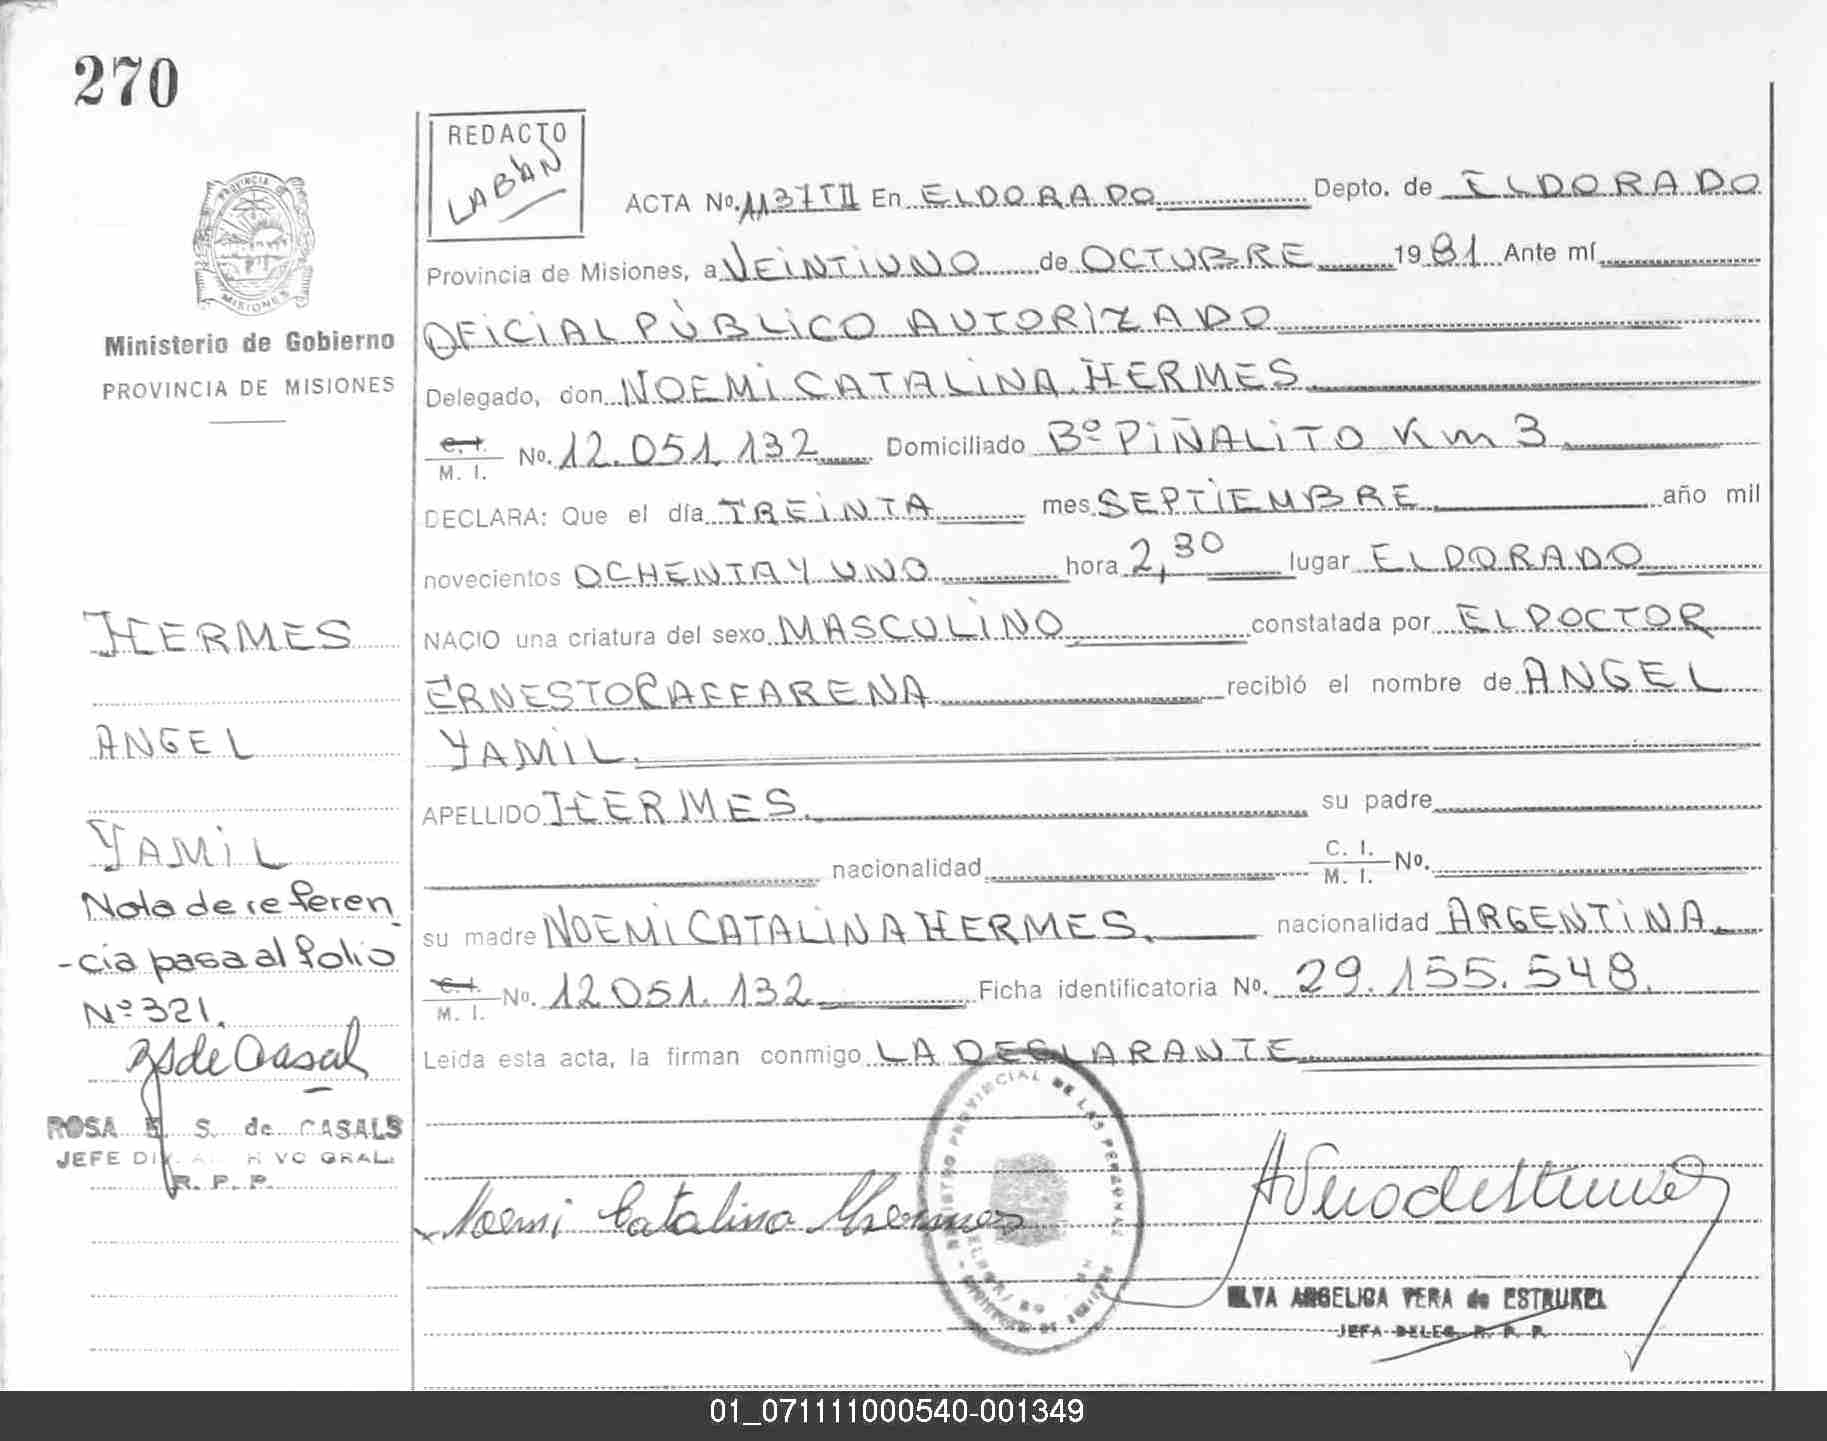 270
REDACTO
LABAN
PROVINCIA DE
MISIONES
Ministerio de Gobierno
PROVINCIA DE MISIONES
ACTA No. 1137 TII En ELDORADO Depto. de ELDORADO
Provincia de Misiones, a VEINTIUNO de OCTUBRE 1981 Ante mí
OFICIAL PÙBLICO AUTORIZADO
Delegado, don NOEMI CATALINA HERMES
C. I. / M. I. No. 12.051.132 Domiciliado Bº PIÑALITO Km 3
DECLARA: Que el día TREINTA mes SEPTIEMBRE año mil
novecientos OCHENTA Y UNO hora 2,30 lugar ELDORADO
NACIO una criatura del sexo MASCULINO constatada por EL DOCTOR
ERNESTO CAFFARENA recibió el nombre de ANGEL
YAMIL.
APELLIDO HERMES. su padre
nacionalidad C. I. / M. I. No.
su madre NOEMI CATALINA HERMES. nacionalidad ARGENTINA.
C. I. / M. I. No. 12051.132 Ficha identificatoria No. 29.155.548.
Leida esta acta, la firman conmigo LA DECLARANTE
HERMES
ANGEL
YAMIL
Nota de referen
-cia pasa al folio
Nº 321.
ROSA E. S. de CASALS
JEFE DIV. GRAL.
R. P. P.
Noemi Catalina Hermes
PROVINCIAL DE LAS PERSONAS
ELVA ANGELICA VERA de ESTRUKEL
JEFA DELEG. R. P. P.
01_071111000540-001349